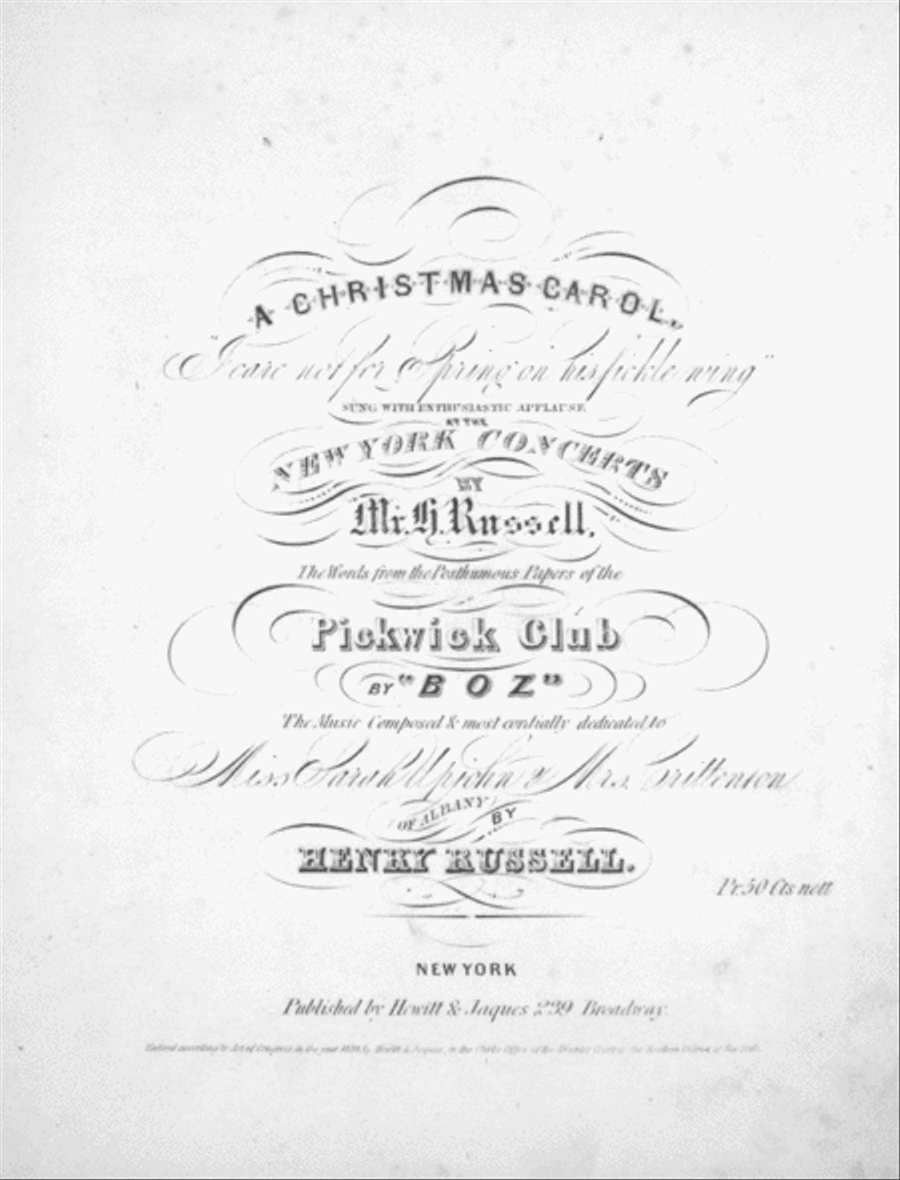 A CHRISTMAS CAROL.
"I care not for Spring on his fickle wing"
SUNG WITH ENTHUSIASTIC APPLAUSE
AT THE
NEW YORK CONCERTS
BY
Mr. H. Russell.
The Words from the Posthumous Papers of the
Pickwick Club
BY "BOZ"
The Music Composed & most cordially dedicated to
Miss Sarah Upjohn & Mrs. Crittenton
OF ALBANY BY
HENRY RUSSELL.
Pr. 50 Cts nett
NEW YORK
Published by Hewitt & Jaques 239 Broadway.
Entered according to Act of Congress in the year 1839, by Hewitt & Jaques, in the Clerks Office of the District Court of the Southern District of New York.